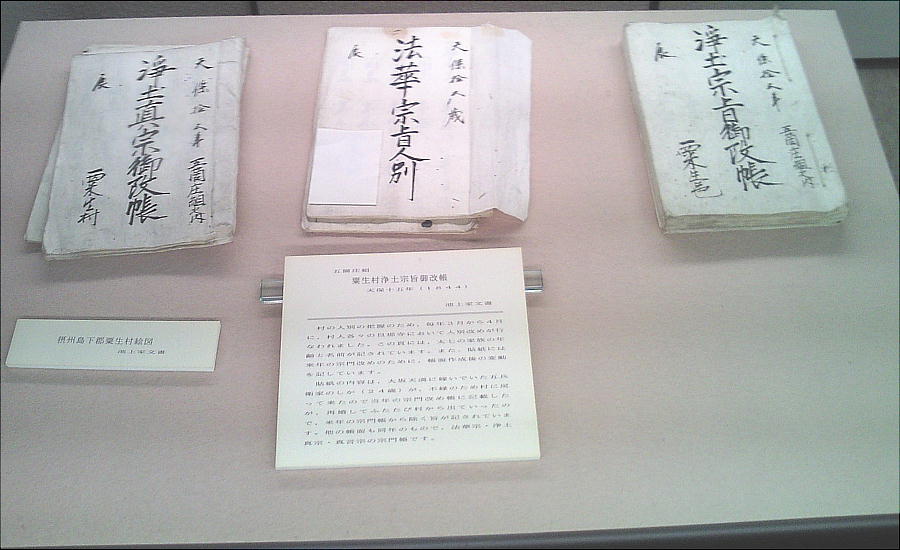 天保拾五年 五箇庄組之内
浄土真宗御改帳
辰 粟生村
天保拾五歳
法華宗旨人別
辰
天保拾五年 五箇庄組之内
浄土宗旨御改帳
辰 粟生邑
摂州島下郡粟生村絵図
池上家文書
五箇庄組
粟生村浄土宗旨御改帳
天保十五年(1844)
池上家文書
村の人別の把握のため、毎年3月から4月
に、村人各々の旦那寺において人別改めが行
なわれました。この頁には、太七の家族の年
齢と名前が記されています。また、貼紙には
来年の宗門改めのために、帳面作成後の変動
を記しています。
貼紙の内容は、大坂天満に嫁いでいた五兵
衛家のしか(24歳)が、不縁のため村に戻
って来たので当年の宗門改め帳に記載した
が、再婚してふたたび村から出ていったの
で、来年の宗門帳から除く旨が記されていま
す。他の帳面も同年のもので、法華宗・浄土
真宗・真言宗の宗門帳です。